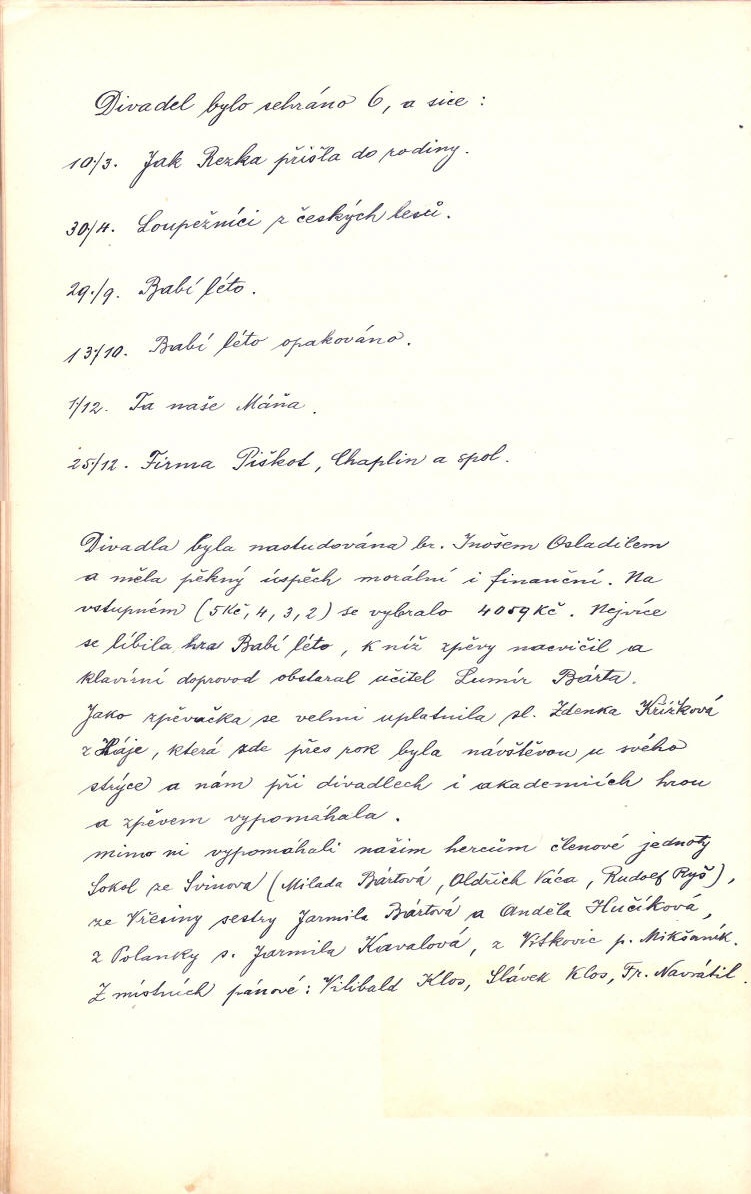 Divadel bylo sehráno 6, a sice :
10./3. Jak Rezka přišla do rodiny.
30/4. Loupežníci z českých lesů.
29./9. Babí léto.
13./10. Babí léto opakováno.
1/12. Ta naše Máňa.
25/12. Firma Piškot, Chaplin a spol.
Divadla byla nastudována br. Inošem Osladilem
a měla pěkný úspěch morální i finanční. Na
vstupném (5Kč, 4, 3, 2) se vybralo 4059 Kč. Nejvíce
se líbila hra Babí léto, k níž zpěvy nacvičil a
klavírní doprovod obstaral učitel Lumír Bárta.
Jako zpěvačka se velmi uplatnila sl. Zdenka Křížková
z Háje, která zde přes rok byla návštěvou u svého
strýce a nám při divadlech i akademiích hrou
a zpěvem vypomáhala.
mimo ni vypomáhali našim hercům členové jednoty
Sokol ze Svinova (Milada Bártová, Oldřich Váca, Rudolf Ryš),
ze Vřesiny sestry Jarmila Bártová a Anděla Hučíková,
z Polanky s. Jarmila Kavalová, z Vítkovic p. Mikšaník.
Z místních pánové : Vilibald Klos, Slávek Klos, Fr. Navrátil.